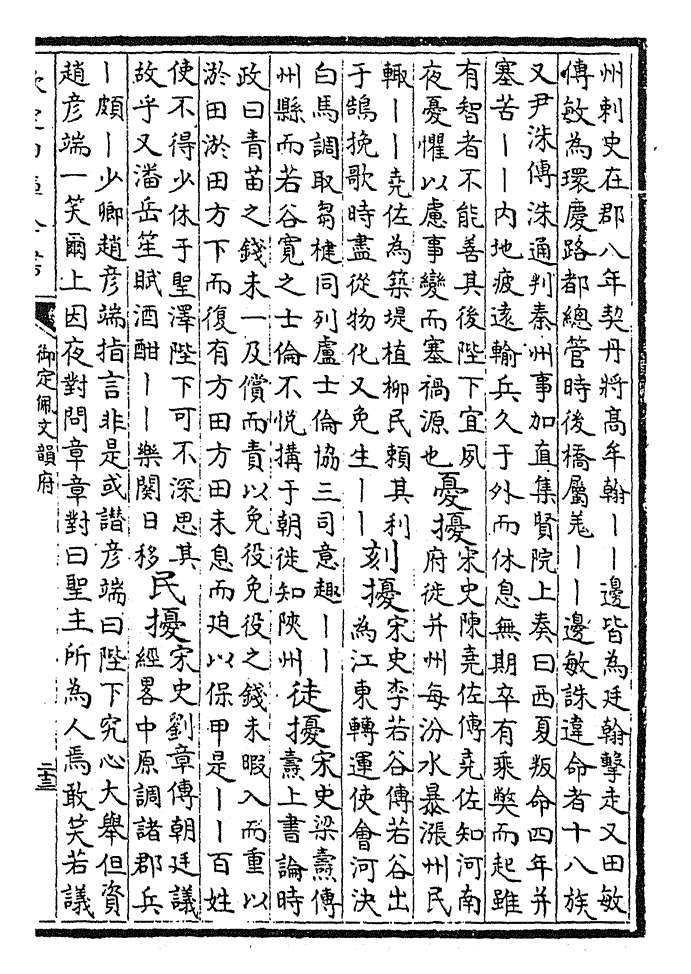 州刺史在郡八年契丹將髙牟翰丨丨邊皆為廷翰擊走又田敏
傳敏為環慶路都總管時後橋屬羗丨丨邊敏誅違命者十八族
又尹洙傳洙通判秦州事加直集賢院上奏曰西夏叛命四年并
塞苦丨丨内地疲逺輸兵久于外而休息無期卒有乗弊而起雖
有智者不能善其後陛下宜夙
夜憂懼以慮事變而塞禍源也
憂擾
宋史陳堯佐傳堯佐知河南
府徙并州每汾水暴漲州民
輙丨丨堯佐為築堤植柳民賴其利
于鵠挽歌時盡從物化又免生丨丨
刻擾
宋史李若谷傳若谷出
為江東轉運使會河決
白馬調取芻楗同列盧士倫協三司意趣丨丨
州縣而若谷寛之士倫不悦搆于朝徙知陜州
徒擾
宋史梁燾傳
燾上書論時
政曰青苗之錢未一及償而責以免役免役之錢未暇入而重以
淤田淤田方下而復有方田方田未息而迫以保甲是丨丨百姓
使不得少休于聖澤陛下可不深思其
故乎又潘岳笙賦酒酣丨丨樂闋日移
民擾
宋史劉章傳朝廷議
經畧中原調諸郡兵
丨頗丨少卿趙彦端指言非是或譛彦端曰陛下究心大舉但資
趙彦端一笑爾上因夜對問章章對曰聖主所為人焉敢笑若議
御定佩文韻府
二十三